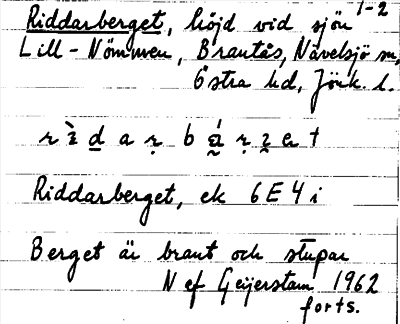 1-2
Riddarberget, höjd vid sjön
Lill-Nömmen, Brantås, Nävelsjö sn,
Östra hd, Jönk. l.
Riddarberget, ek 6E4i
Berget är brant och stupar
N ef Geijerstam 1962
forts.